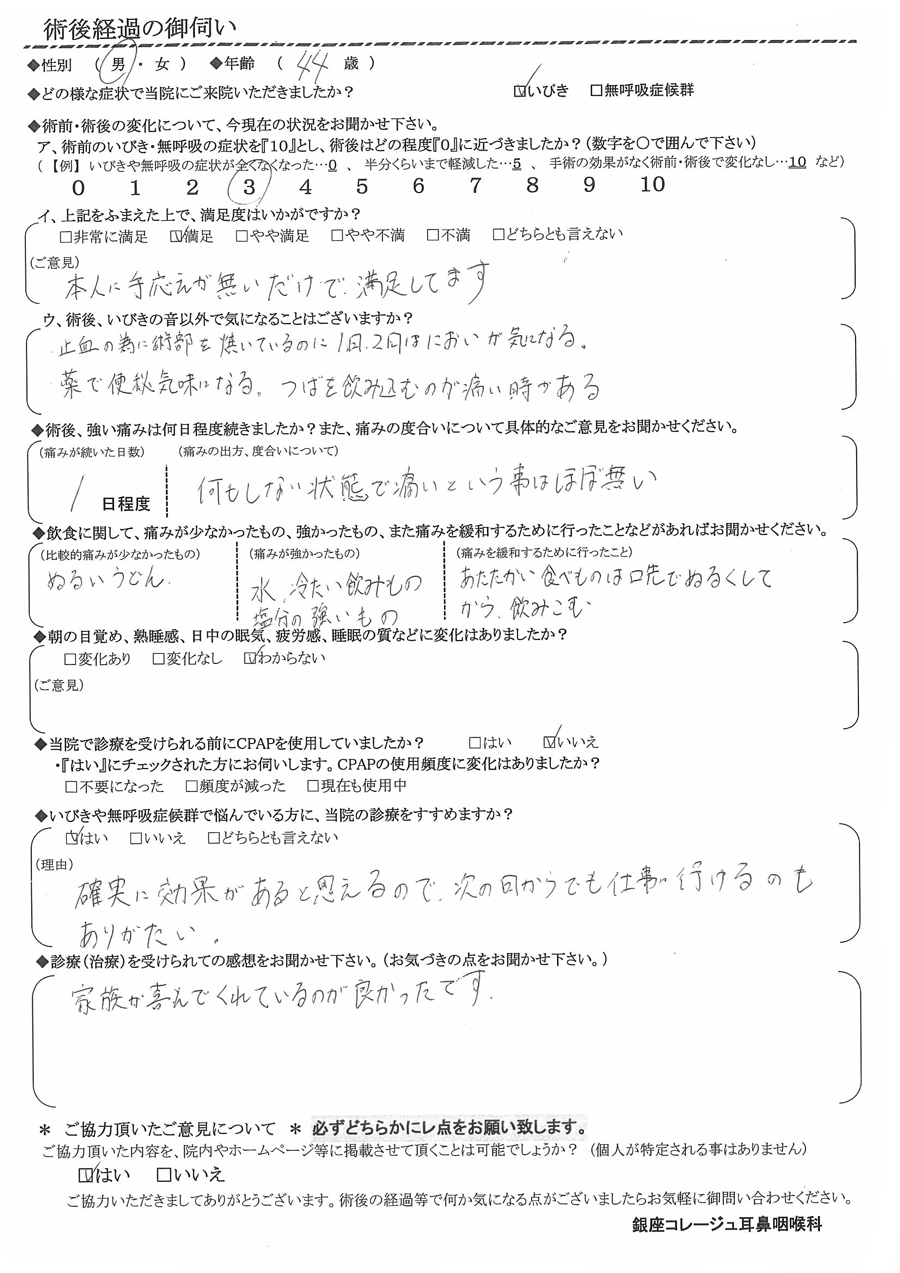 術後経過の御伺い
◆性別 （ 男 ・ 女 ） ◆年齢 （ 44 歳 ）
◆どの様な症状で当院にご来院いただきましたか？ ☑いびき □無呼吸症候群
◆術前・術後の変化について、今現在の状況をお聞かせ下さい。
ア、術前のいびき・無呼吸の症状を『10』とし、術後はどの程度『0』に近づきましたか？（数字を○で囲んで下さい）
（【例】いびきや無呼吸の症状が全くなくなった…0 、 半分くらいまで軽減した…5 、 手術の効果がなく術前・術後で変化なし…10 など）
0 1 2 3 4 5 6 7 8 9 10
イ、上記をふまえた上で、満足度はいかがですか？
□非常に満足 ☑満足 □やや満足 □やや不満 □不満 □どちらとも言えない
（ご意見）
本人に手応えが無いだけで、満足してます
ウ、術後、いびきの音以外で気になることはございますか？
止血の為に術部を焼いているのに1回、2回はにおいが気になる。
薬で便秘気味になる。つばを飲み込むのが痛い時がある
◆術後、強い痛みは何日程度続きましたか？また、痛みの度合いについて具体的なご意見をお聞かせください。
（痛みが続いた日数） （痛みの出方、度合いについて）
1 日程度 何もしない状態で痛いという事はほぼ無い
◆飲食に関して、痛みが少なかったもの、強かったもの、また痛みを緩和するために行ったことなどがあればお聞かせください。
（比較的痛みが少なかったもの） （痛みが強かったもの） （痛みを緩和するために行ったこと）
ぬるいうどん. 水、冷たい飲みもの あたたかい食べものは口先でぬるくして
塩分の強いもの から、飲みこむ
◆朝の目覚め、熟睡感、日中の眠気、疲労感、睡眠の質などに変化はありましたか？
□変化あり □変化なし ☑わからない
（ご意見）
◆当院で診療を受けられる前にCPAPを使用していましたか？ □はい ☑いいえ
・『はい』にチェックされた方にお伺いします。CPAPの使用頻度に変化はありましたか？
□不要になった □頻度が減った □現在も使用中
◆いびきや無呼吸症候群で悩んでいる方に、当院の診療をすすめますか？
☑はい □いいえ □どちらとも言えない
（理由）
確実に効果があると思えるので、次の日からでも仕事が行けるのも
ありがたい。
◆診療（治療）を受けられての感想をお聞かせ下さい。（お気づきの点をお聞かせ下さい。）
家族が喜んでくれているのが良かったです.
＊ ご協力頂いたご意見について ＊ 必ずどちらかにレ点をお願い致します。
ご協力頂いた内容を、院内やホームページ等に掲載させて頂くことは可能でしょうか？ （個人が特定される事はありません）
☑はい □いいえ
ご協力いただきましてありがとうございます。術後の経過等で何か気になる点がございましたらお気軽に御問い合わせください。
銀座コレージュ耳鼻咽喉科